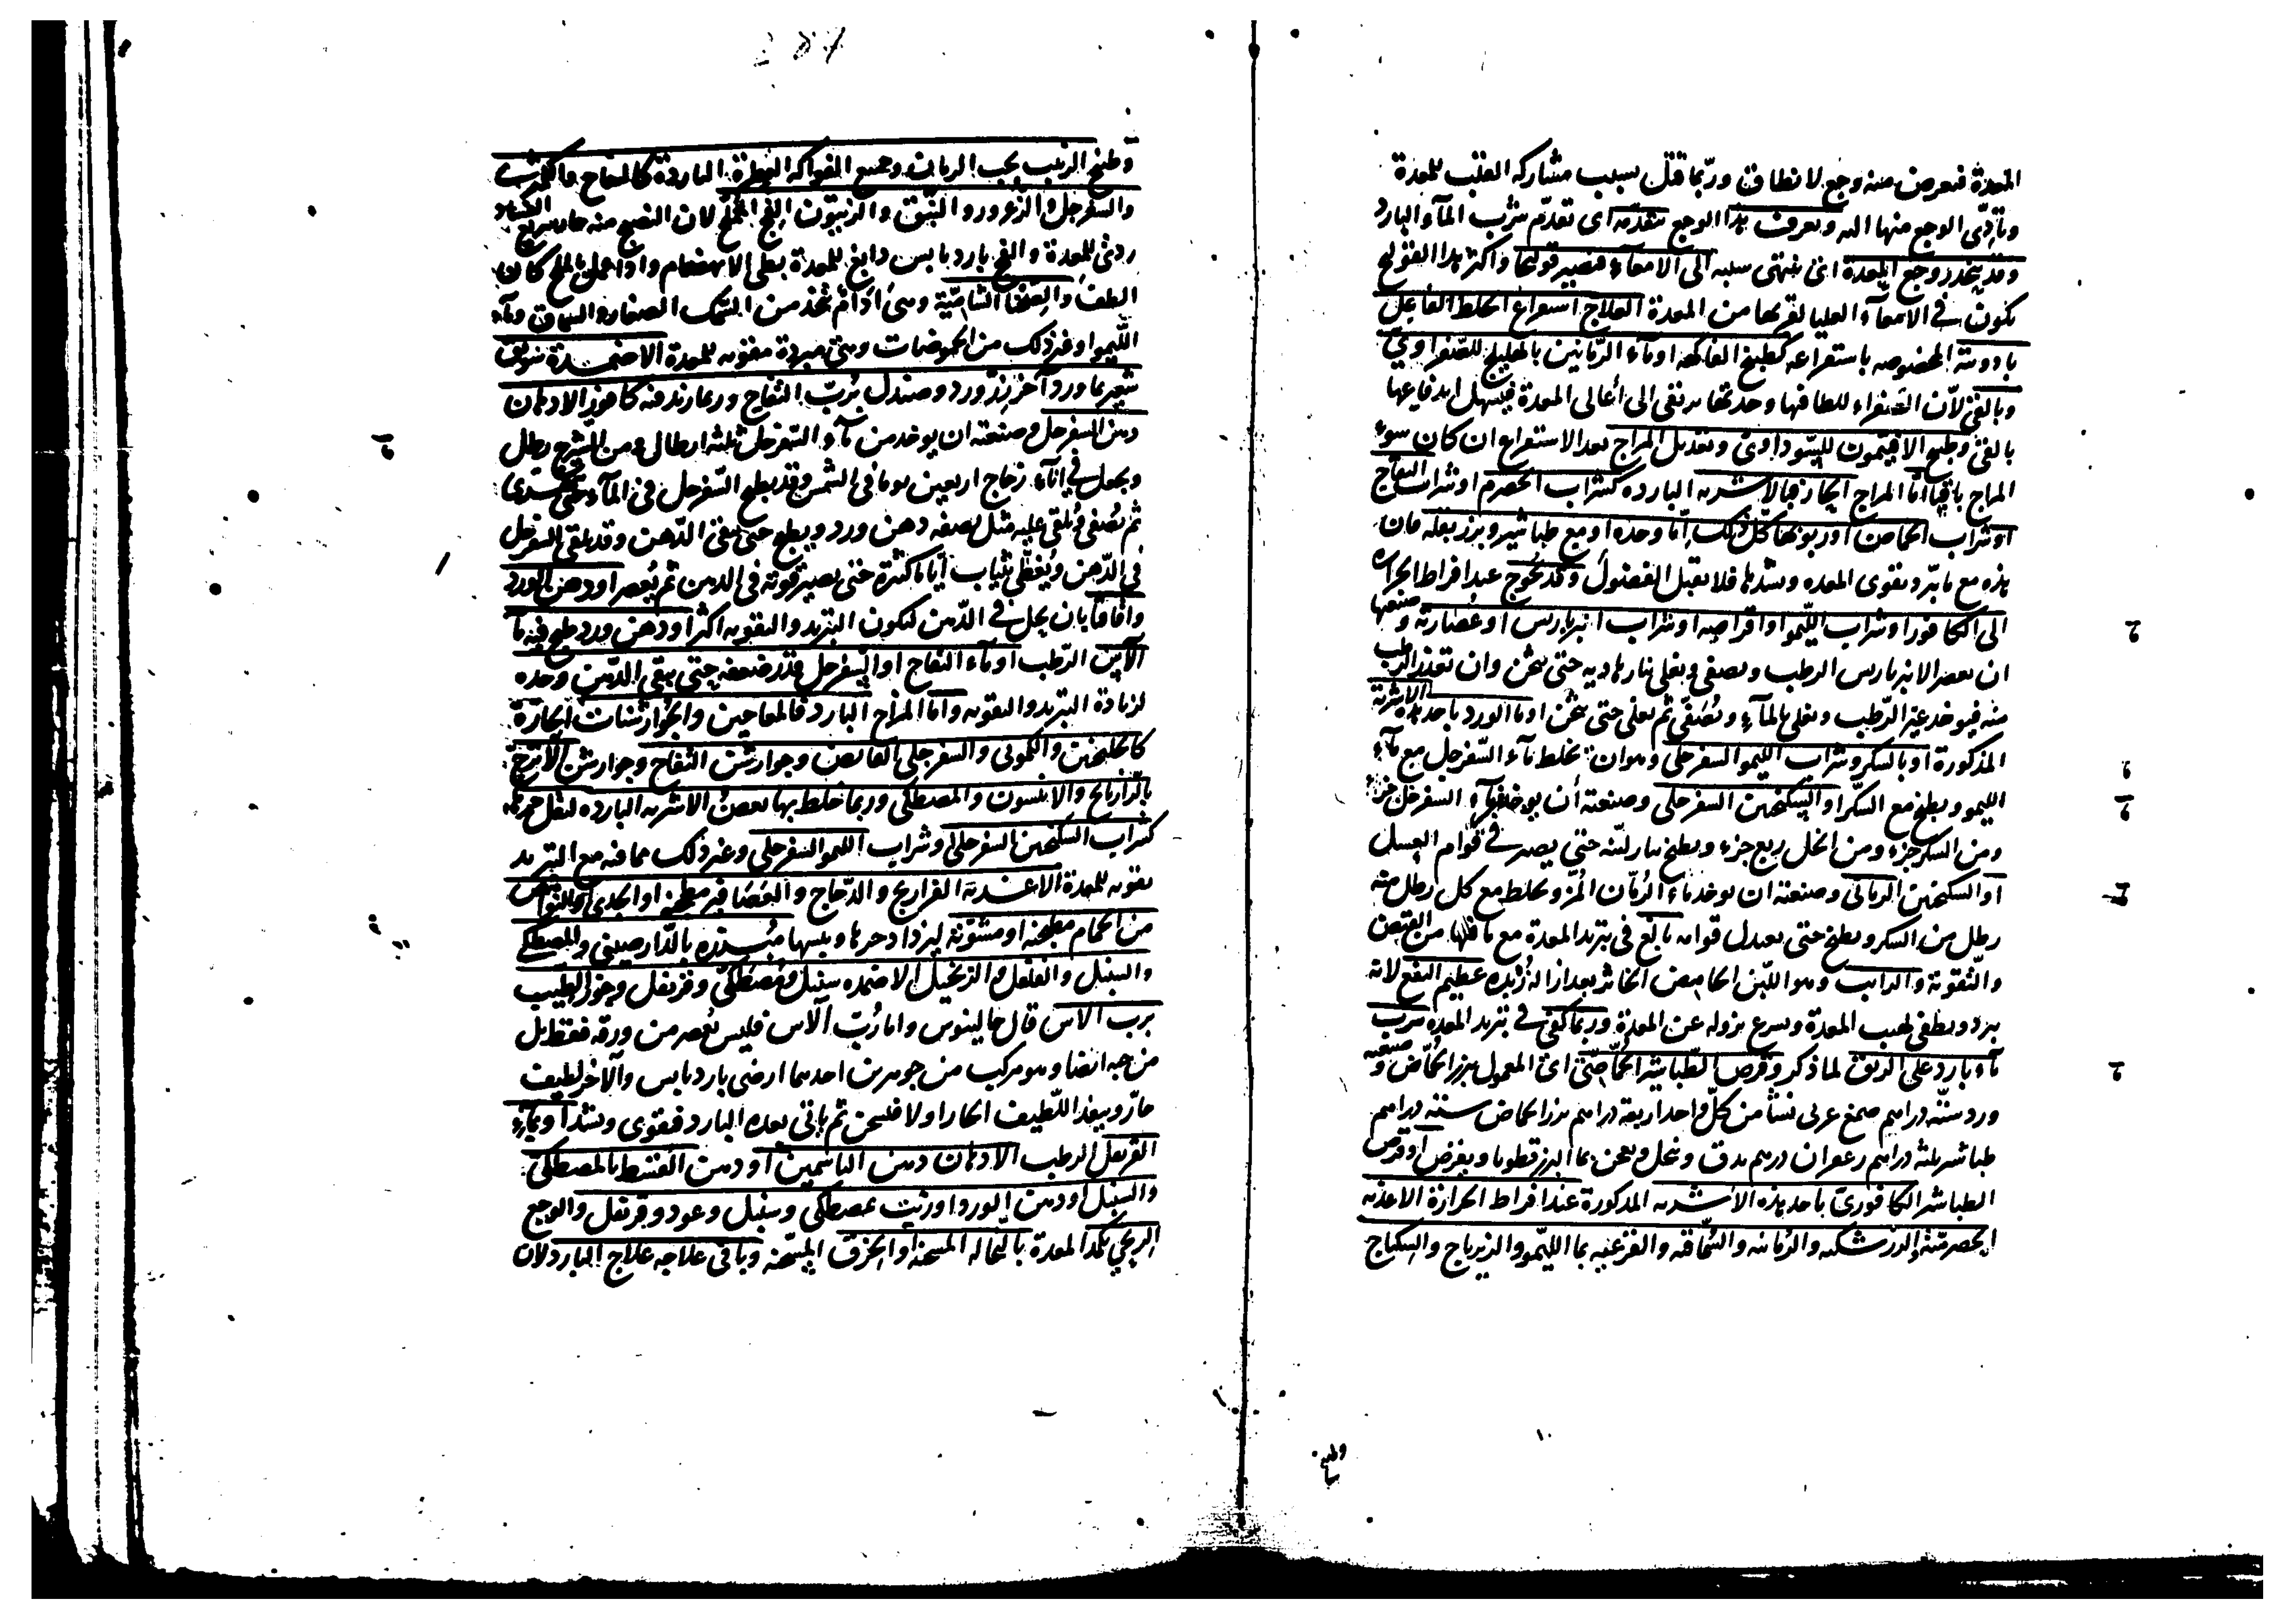 المعدة فيعرض منه وجع لا يطاق وربما قتل بسبب مشاركه القلب للمعدة
وتأدّى الوجع منها اليه ويعرف هذا الوجع بتقدمه اى تقدّم شرب المآء البارد
وقد ينحدر وجع المعدة اى ينتهى سببه الى الامعآء فيصير قولنجا واكثر هذا القولنج
يكون فى الامعآء العليا لقربها من المعدة العلاج استفراغ الخلط الفاعل
بادويته المخصوصه باستفراغه كطبيخ الفاكهه او مآء الرّمانين بالهليلج للصّفراوى
وبالقئ لأنّ الصّفراء للطافتها وحدتها ترتقى الى أعالى المعدة فيسهل اندفاعها
بالقئ وطبيخ الافتيمون للسّوداوى وتعديل المزاج بعد الاستفراغ ان كان سوء
المزاج باقيا اما المزاج الحار فبالاشربه البارده كشراب الحصرم او شراب التفاح
او شراب الحماض او ربوبها كل ذلك اما وحده او مع طباشير وبزر بقله فان
هذه مع ما تبرّد تقوى المعده وتشدها فلا تقبل الفضول وقد يحوج عند افراط الحراره
الى الكافور او شراب الليمو او اقراصه او شراب انبرباريس او عصارته وصنعتها
ان يعصر الانبرباريس الرطب ويصفى ويغلى بنار هاديه حتى يثخن وان تعذر الرطب
منه فيوخذ غير الرّطب ويغلى بالمآء ويُصَفّى ثم يغلى حتى يثخن او مآ الورد باحد هذه الاشربة
المذكورة او بالسكر وشراب الليمو السفرجلى وهو ان يخلط مآء السّفرجل مع مآء
الليمو ويطبخ مع السكّر او السكنجبين السفرجلى وصنعته أن يوخذ مآء السفرجل جزء
ومن السكر جزء ومن الخل ربع جزء ويطبخ بنار ليّنه حتى يصير فى قوام العسل
او السكنجبين الرمانى وصنعته ان يوخذ ماء الرُّمّان المُزّ ويخلط مع كل رطل منه
رطل من السكر ويطبخ حتى يعتدل قوامه بالغ فى تبريد المعدة مع ما فيها من القبض
والتّقوية والرائب وهو اللّبن الحامض الخاثر بعد ازالة زُبْده عظيم النفع لانّه
يبرد ويطفى لهيب المعدة ويسرع نزوله عن المعدة وربما كفى فى تبريد المعده شرب
مآء بارد على الريق لما ذكر وقرص الطّباشير الحُمّاضىّ اى المعمول ببزر الحُمّاض وصنعته
ورد ستّه دراهم صمغ عربى نشأ من كلّ واحد اربعة دراهم بزر الحماض ستّه دراهم
طباشير ثلثه دراهم زعفران درهم يدق وينخل ويعجن بمآ البزر قطونا ويقرض او قرص
الطباشير الكافورىّ باحد هذه الأشربه المذكورة عند افراط الحرارة الاغذيه
الحصرميّة والزرشكيه والرّمانيه والسُّمّاقيه والقرعيه بمآ الليّمو والزيرباج والسكباج
وطبيخ
وطبيخ الزبيب بحب الرمان وجميع الفواكه العطرة الباردة كالتفاح والكمثرى
والسفرجل والزّعرور والنّبق والزيتون الفج المملح لان النضيج منه حار سريع الفساد
ردئ للمعدة والفج بارد يابس دابغ للمعدة بطئ الانهضام واذا عمل بالملح كان
الطف والصّحنا الشاميّة وهى اَدَام يتخذ من السّمك الصغار والسماق ومآء
اللّيمو او غير ذلك من الحموضات وهى مبردة مقويه للمعدة الاضمدة سويق
شعير بماورد آخر وَرْد وصندل برُبّ التفاح وربما زيد فيه كافور الادهان
دهن السفرجل وصنعته ان يوخذ من مآء السّفرجل ثلثه ارطال ومن الشيرج رطل
ويجعل فى انآء زجاج اربعين يوما فى الشمس وقد يطبخ السّفرجل فى المآء حتى يتهرى
ثم يُصَفى ويُلقى عليه مثل نصفه دهن ورد ويطبخ حتى يبقى الدّهن وقد يلقى السفرجل
فى الدّهن ويُغَطّى بثياب أيّاما كثيرة حتى يصير قوته فى الدهن ثم يُعصر او دهن الورد
واقاقيا بان يحل فى الدّهن ليكون التبريد والتقويه اكثر او دهن ورد طبخ فيه مآ
الآس الرّطب او مآء التفاح او السفرجل قدر ضعفه حتى يبقى الدّهن وحده
لزيادة التبريد والتقويه واما المزاج البارد فالمعاجين والجوارشنات الحارّة
كالخلنجبين والكمونى والسفرجلى القابض وجوارشن التفاح وجوارشن الاترج
بالرّازيانج والانيسون والمصطكى وربما خلط بها بعض الاشربه البارده ليقل حرها
كشراب السكنجبين السفرجلى او شراب الليمو السفرجلى وغير ذلك مما فيه مع التبريد
تقويه للمعدة الاغذية الفراريج والدّجاج والعَصَافير مطجنه او الجدى او النواهض
من الحمام مطجنه او مشويّة ليزداد حرها ويبسها مُبَزّره بالدّارصينى والمصطكى
والسنبل والفلفل والزنجبيل الاضمده سنبل ومُصْطَكى وقرنفل وجوز الطيب
برب الاس قال جالينوس واما رُبّ الآس فليس يُعصر من ورقه فقط بل
من حبه ايضا وهو مركب من جوهرين احدهما ارضى بارد يابس والآخر لطيف
حارّ وينفذ اللّطيف الحار اولا فيسخن ثم يأتى بعده البارد فيقوى ويشد او بمآء
القرنفل الرطب الادهان دهن الياسمين او دهن القسط بالمصطكى
والسنبل او دهن الورد او زيت بمصطكى وسنبل وعود وقرنفل والوجع
الريحى يكمد المعدة بالنخاله المسخنه او الخرق المسّخنه وباقى علاجه علاج البارد لان